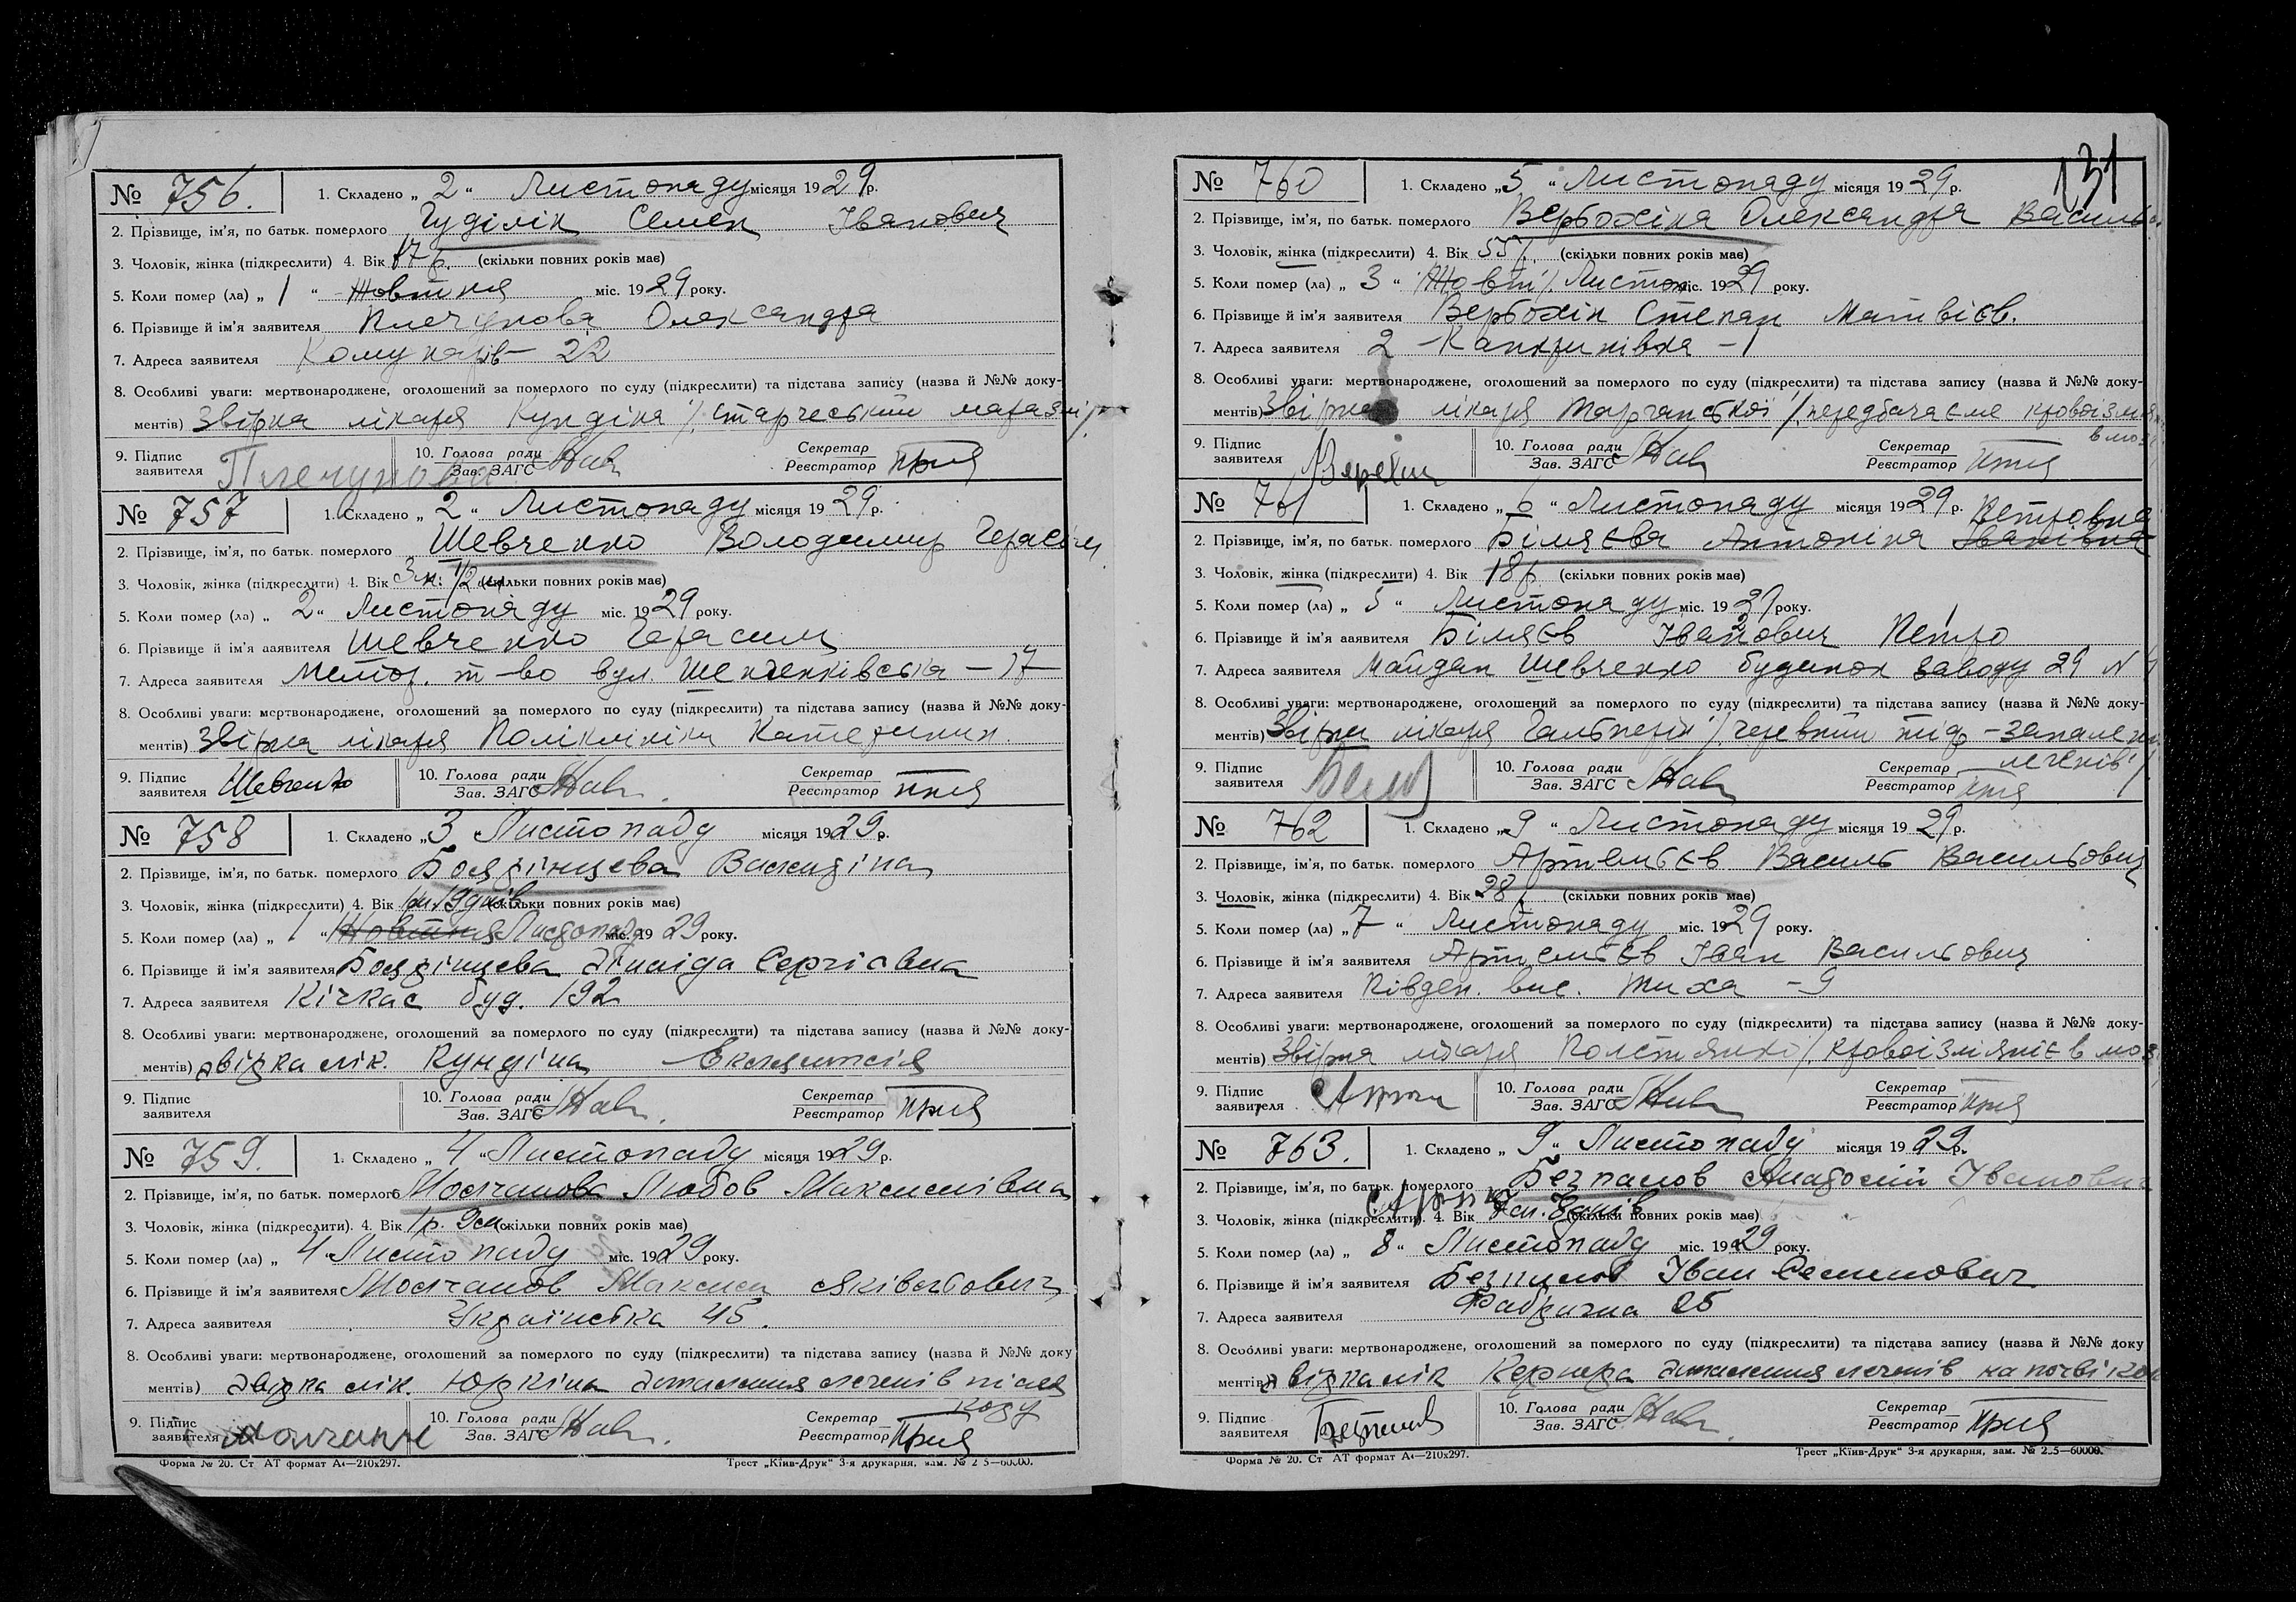 № 756. 1. Складено „ 2 “ Листопаду місяця 1929 р.
2. Прізвище, ім'я, по батьк. померлого Гуділін Семен Іванович
3. Чоловік, жінка (підкреслити) 4. Вік р. (скільки повних років має)
5. Коли помер (ла) „ 1 “ Жовтня міс. 1929 року.
6. Прізвище й ім'я заявителя Плечунова Олександра
7. Адреса заявителя Комунарів – 22
8. Особливі уваги: мертвонароджене, оголошений за померлого по суду (підкреслити) та підстава запису (назва й №№ доку-
ментів) Звірка лікаря Кундіна /старчеський маразм/.
9. Підпис заявителя Плечунова 10. Голова ради Зав. ЗАГС Секретар Реєстратор
№ 757 1. Складено „ 2 “ Листопаду місяця 1929 р.
2. Прізвище, ім'я, по батьк. померлого Шевченко Володимир Герасім
3. Чоловік, жінка (підкреслити) 4. Вік 3 м. 1/2 (скільки повних років має)
5. Коли помер (ла) „ 2 “ Листопаду міс. 1929 року.
6. Прізвище й ім'я заявителя Шевченко Герасим
7. Адреса заявителя т-во вул. Шевченківська – 17
8. Особливі уваги: мертвонароджене, оголошений за померлого по суду (підкреслити) та підстава запису (назва й №№ доку-
ментів) Звірка лікаря Поліклініки Катеринин.
9. Підпис заявителя Шевченко 10. Голова ради Зав. ЗАГС Секретар Реєстратор
№ 758 1. Складено „ 3 Листопаду місяця 1929 р.
2. Прізвище, ім'я, по батьк. померлого Бояринцева
3. Чоловік, жінка (підкреслити) 4. Вік 1 м. 19 днів (скільки повних років має)
5. Коли помер (ла) „ 1 “ Жовтня Листопаду міс. 1929 року.
6. Прізвище й ім'я заявителя Бояринцева Зінаіда Сергіовна
7. Адреса заявителя Кічкас буд. 192
8. Особливі уваги: мертвонароджене, оголошений за померлого по суду (підкреслити) та підстава запису (назва й №№ доку-
ментів) звірка лік. Кундіна Еклямпсія
9. Підпис заявителя 10. Голова ради Зав. ЗАГС Секретар Реєстратор
№ 759. 1. Складено „ 4 “ Листопаду місяця 1929 р.
2. Прізвище, ім'я, по батьк. померлого Молчанова Любов Максимівна
3. Чоловік, жінка (підкреслити). 4. Вік 1 р. 9 м (скільки повних років має)
5. Коли помер (ла) „ 4 “ Листопаду міс. 1929 року.
6. Прізвище й ім'я заявителя Молчанов Максим Яківльович
7. Адреса заявителя Українська 45.
8. Особливі уваги: мертвонароджене, оголошений за померлого по суду (підкреслити) та підстава запису (назва й №№ доку
ментів) звірка лік. Юркіна запалення легенів після
кору
9. Підпис заявителя Молчанов 10. Голова ради Зав. ЗАГС Секретар Реєстратор
Форма № 20. Ст. АТ формат А4—210х297. Трест „Київ-Друк“ 3-я друкарня, зам. № 2 5—60000.
131
№ 760 1. Складено „ 5 “ Листопаду місяця 1929 р.
2. Прізвище, ім'я, по батьк. померлого Вербохіна Олександра Василь
3. Чоловік, жінка (підкреслити) 4. Вік 55 р. (скільки повних років має)
5. Коли помер (ла) „ 3 “ /Жовт/ Листоп міс. 1929 року.
6. Прізвище й ім'я заявителя Вербохін Степан Матвієв.
7. Адреса заявителя 2 – Канкринівка – 1
8. Особливі уваги: мертвонароджене, оголошений за померлого по суду (підкреслити) та підстава запису (назва й №№ доку-
ментів) Звірка лікаря /передбачаєме
9. Підпис заявителя 10. Голова ради Зав. ЗАГС Секретар Реєстратор
№ 761 1. Складено „ 6 “ Листопаду місяця 1929 р. Петровна
2. Прізвище, ім'я, по батьк. померлого Біляєва Антоніна Іванівна
3. Чоловік, жінка (підкреслити) 4. Вік 18 р (скільки повних років має)
5. Коли помер (ла) „ 5 “ Листопаду міс. 1929 року.
6. Прізвище й ім'я заявителя Біляєв Іванович Петро
7. Адреса заявителя Майдан Шевченко будинок заводу 29 N 4
8. Особливі уваги: мертвонароджене, оголошений за померлого по суду (підкреслити) та підстава запису (назва й №№ доку-
ментів) Звірка лікаря Гальперін /черевний тіф – запален
легенів/
9. Підпис заявителя 10. Голова ради Зав. ЗАГС Секретар Реєстратор
№ 762 1. Складено „ 9 “ Листопаду місяця 1929 р.
2. Прізвище, ім'я, по батьк. померлого Артемьєв Василь Васильович
3. Чоловік, жінка (підкреслити) 4. Вік 28 р. (скільки повних років має)
5. Коли помер (ла) „ 7 “ Листопаду міс. 1929 року.
6. Прізвище й ім'я заявителя Артемьєв Іван Васильович
7. Адреса заявителя Півден. вис. Тиха – 9
8. Особливі уваги: мертвонароджене, оголошений за померлого по суду (підкреслити) та підстава запису (назва й №№ доку-
ментів) Звірка лікаря в моз
9. Підпис заявителя 10. Голова ради Зав. ЗАГС Секретар Реєстратор
№ 763. 1. Складено „ 9 “ Листопаду місяця 1929 р.
2. Прізвище, ім'я, по батьк. померлого Безпалов Анатолій Іванович
3. Чоловік, жінка (підкреслити). 4. Вік 8 днів (скільки повних років має)
5. Коли помер (ла) „ 8 “ Листопаду міс. 1929 року.
6. Прізвище й ім'я заявителя Безпалов Іван Семенович
7. Адреса заявителя Фабрична 25
8. Особливі уваги: мертвонароджене, оголошений за померлого по суду (підкреслити) та підстава запису (назва й №№ доку
ментів) звірка лік Кернера запалення легенів на почві
9. Підпис заявителя 10. Голова ради Зав. ЗАГС Секретар Реєстратор
Форма № 20. Ст АТ формат А4—210х297. Трест „Київ-Друк“ 3-я друкарня, зам. № 2.5—60000.